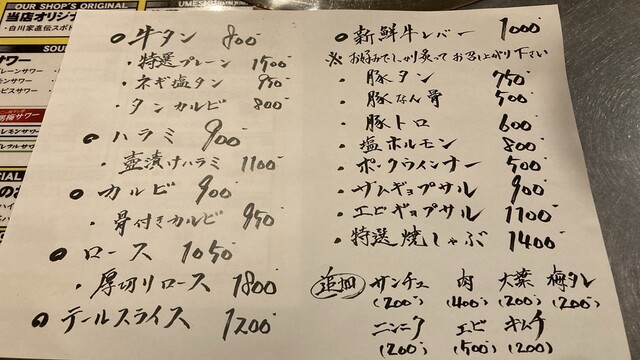 OUR SHOP'S ORIGINAL
当店オリジナ
・白川家直伝スポド
サワー
レモンサワー
牛タン 800
・特選プレーン 1500
・ネギ塩タン 950
・タンカルビ 800
ハラミ 900
・壺漬けハラミ 1100
カルビ 900
・骨付きカルビ 950
ロース 1050
・厚切りロース 1800
テールスライス 1200
新鮮牛レバー 1000
※お好みでしっかり炙ってお召し上がり下さい
・豚タン 750
・豚なん骨 500
・豚トロ 600
・塩ホルモン 800
・ポークウインナー 500
・サムギョプサル 900
・エビギョプサル 1100
・特選焼しゃぶ 1400
追加 サンチュ 肉 大葉 梅タレ
(200) (400) (200) (200)
ニンニク エビ キムチ
(200) (500) (200)